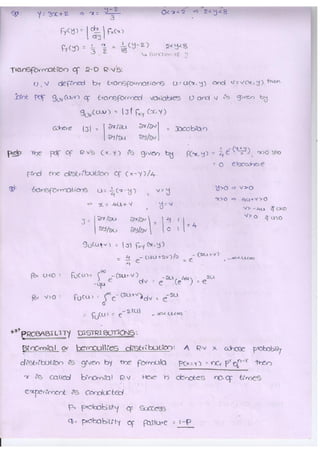 Y=3X+2 ⇒ x = y-2 / 3   0<x<2 ⇒ 2<y<8
fY(y) = |dx/dy| fX(x)
fY(y) = 1/3 · x/2 = 1/18 (y-2)   2<y<8
↳ function of y
Transformation of 2-D R.Vs:
U, V defined by transformations U=u(x,y) and V=v(x,y) then
joint Pdf guv(u,v) of transformed variables U and V is given by
guv(u,v) = |J| fxy (x,y)
where |J| = | ∂x/∂u ∂x/∂v | = Jacobian
| ∂y/∂u ∂y/∂v |
Prob The Pdf of R.Vs (x,y) is given by
= 0 elsewhere
Find the distribution of (x-y)/4
Transformations u = 1/4 (x-y) , v=y   y>0 ⇒ v>0
⇒ x = 4u+v , y=v   x>0 ⇒ 4u+v>0
v>-4u if u<0
v>0 if u>0
J = | ∂x/∂u ∂x/∂v | = | 4 1 | = 4
| ∂y/∂u ∂y/∂v | | 0 1 |
guv(u,v) = |J| fxy (x,y)
***PROBABILITY DISTRIBUTIONS:
Binomial or bernoullies distribution: A R.V x whose probability
distribution is given by the formula P(x=r) = nCr p^r q^n-r then
x is called binomial R.V Here n denotes no.of times
experiment is conducted
p- probability of success
q- probability of failure = 1-p